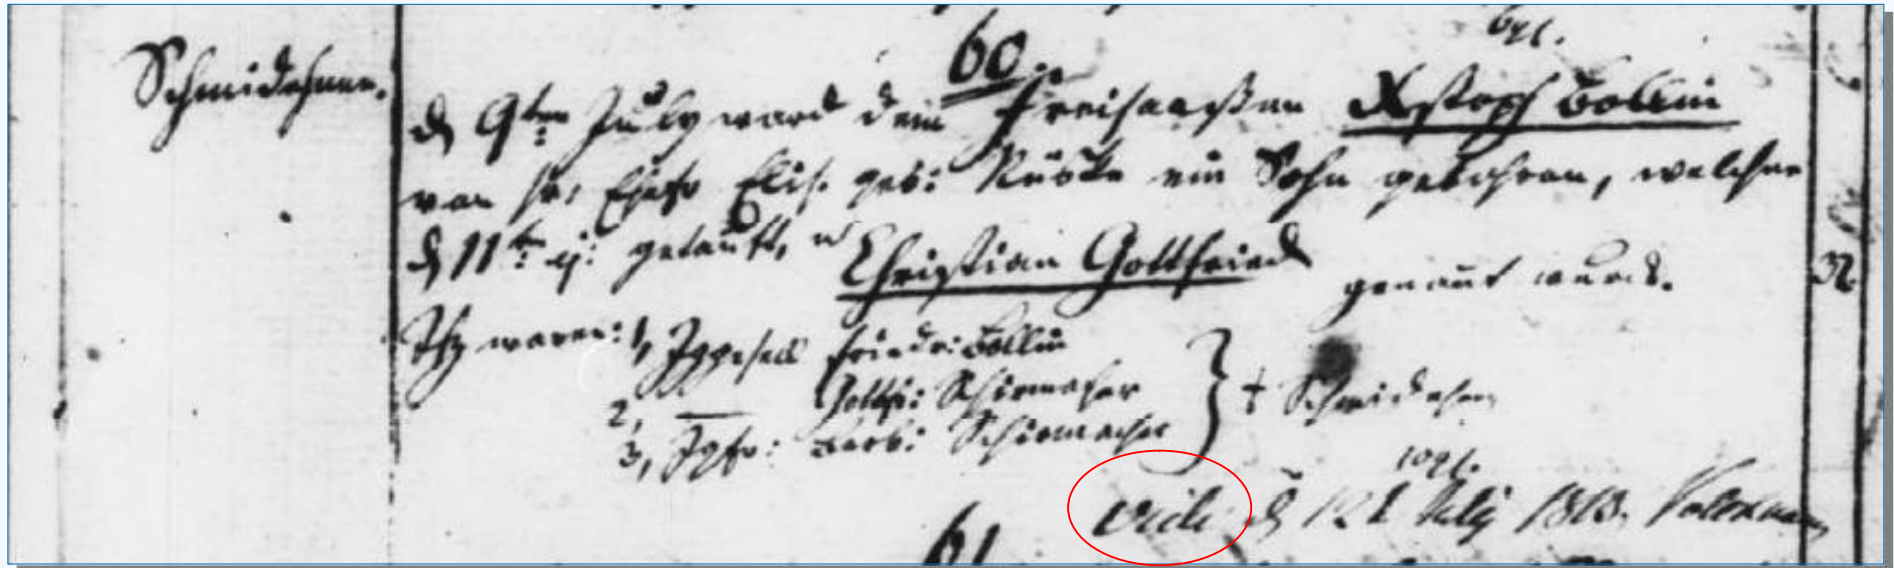 60.
Schmidehnen.
d 9ten July ward dem Freisaaßen Xstoph Bollin
von sr: Ehefr Elis. geb: Küske ein Sohn gebohren, welcher
d 11ten ej: getauft, u Christian Gottfried genannt wurde.
Tfz waren: 1, Jggesell Friedr: Bollin
2, — Gottfr: Schirmacher
3, Jgfr: Barb: Schirmacher
} Schmidehnen
vidi d 12t July 1813.
61